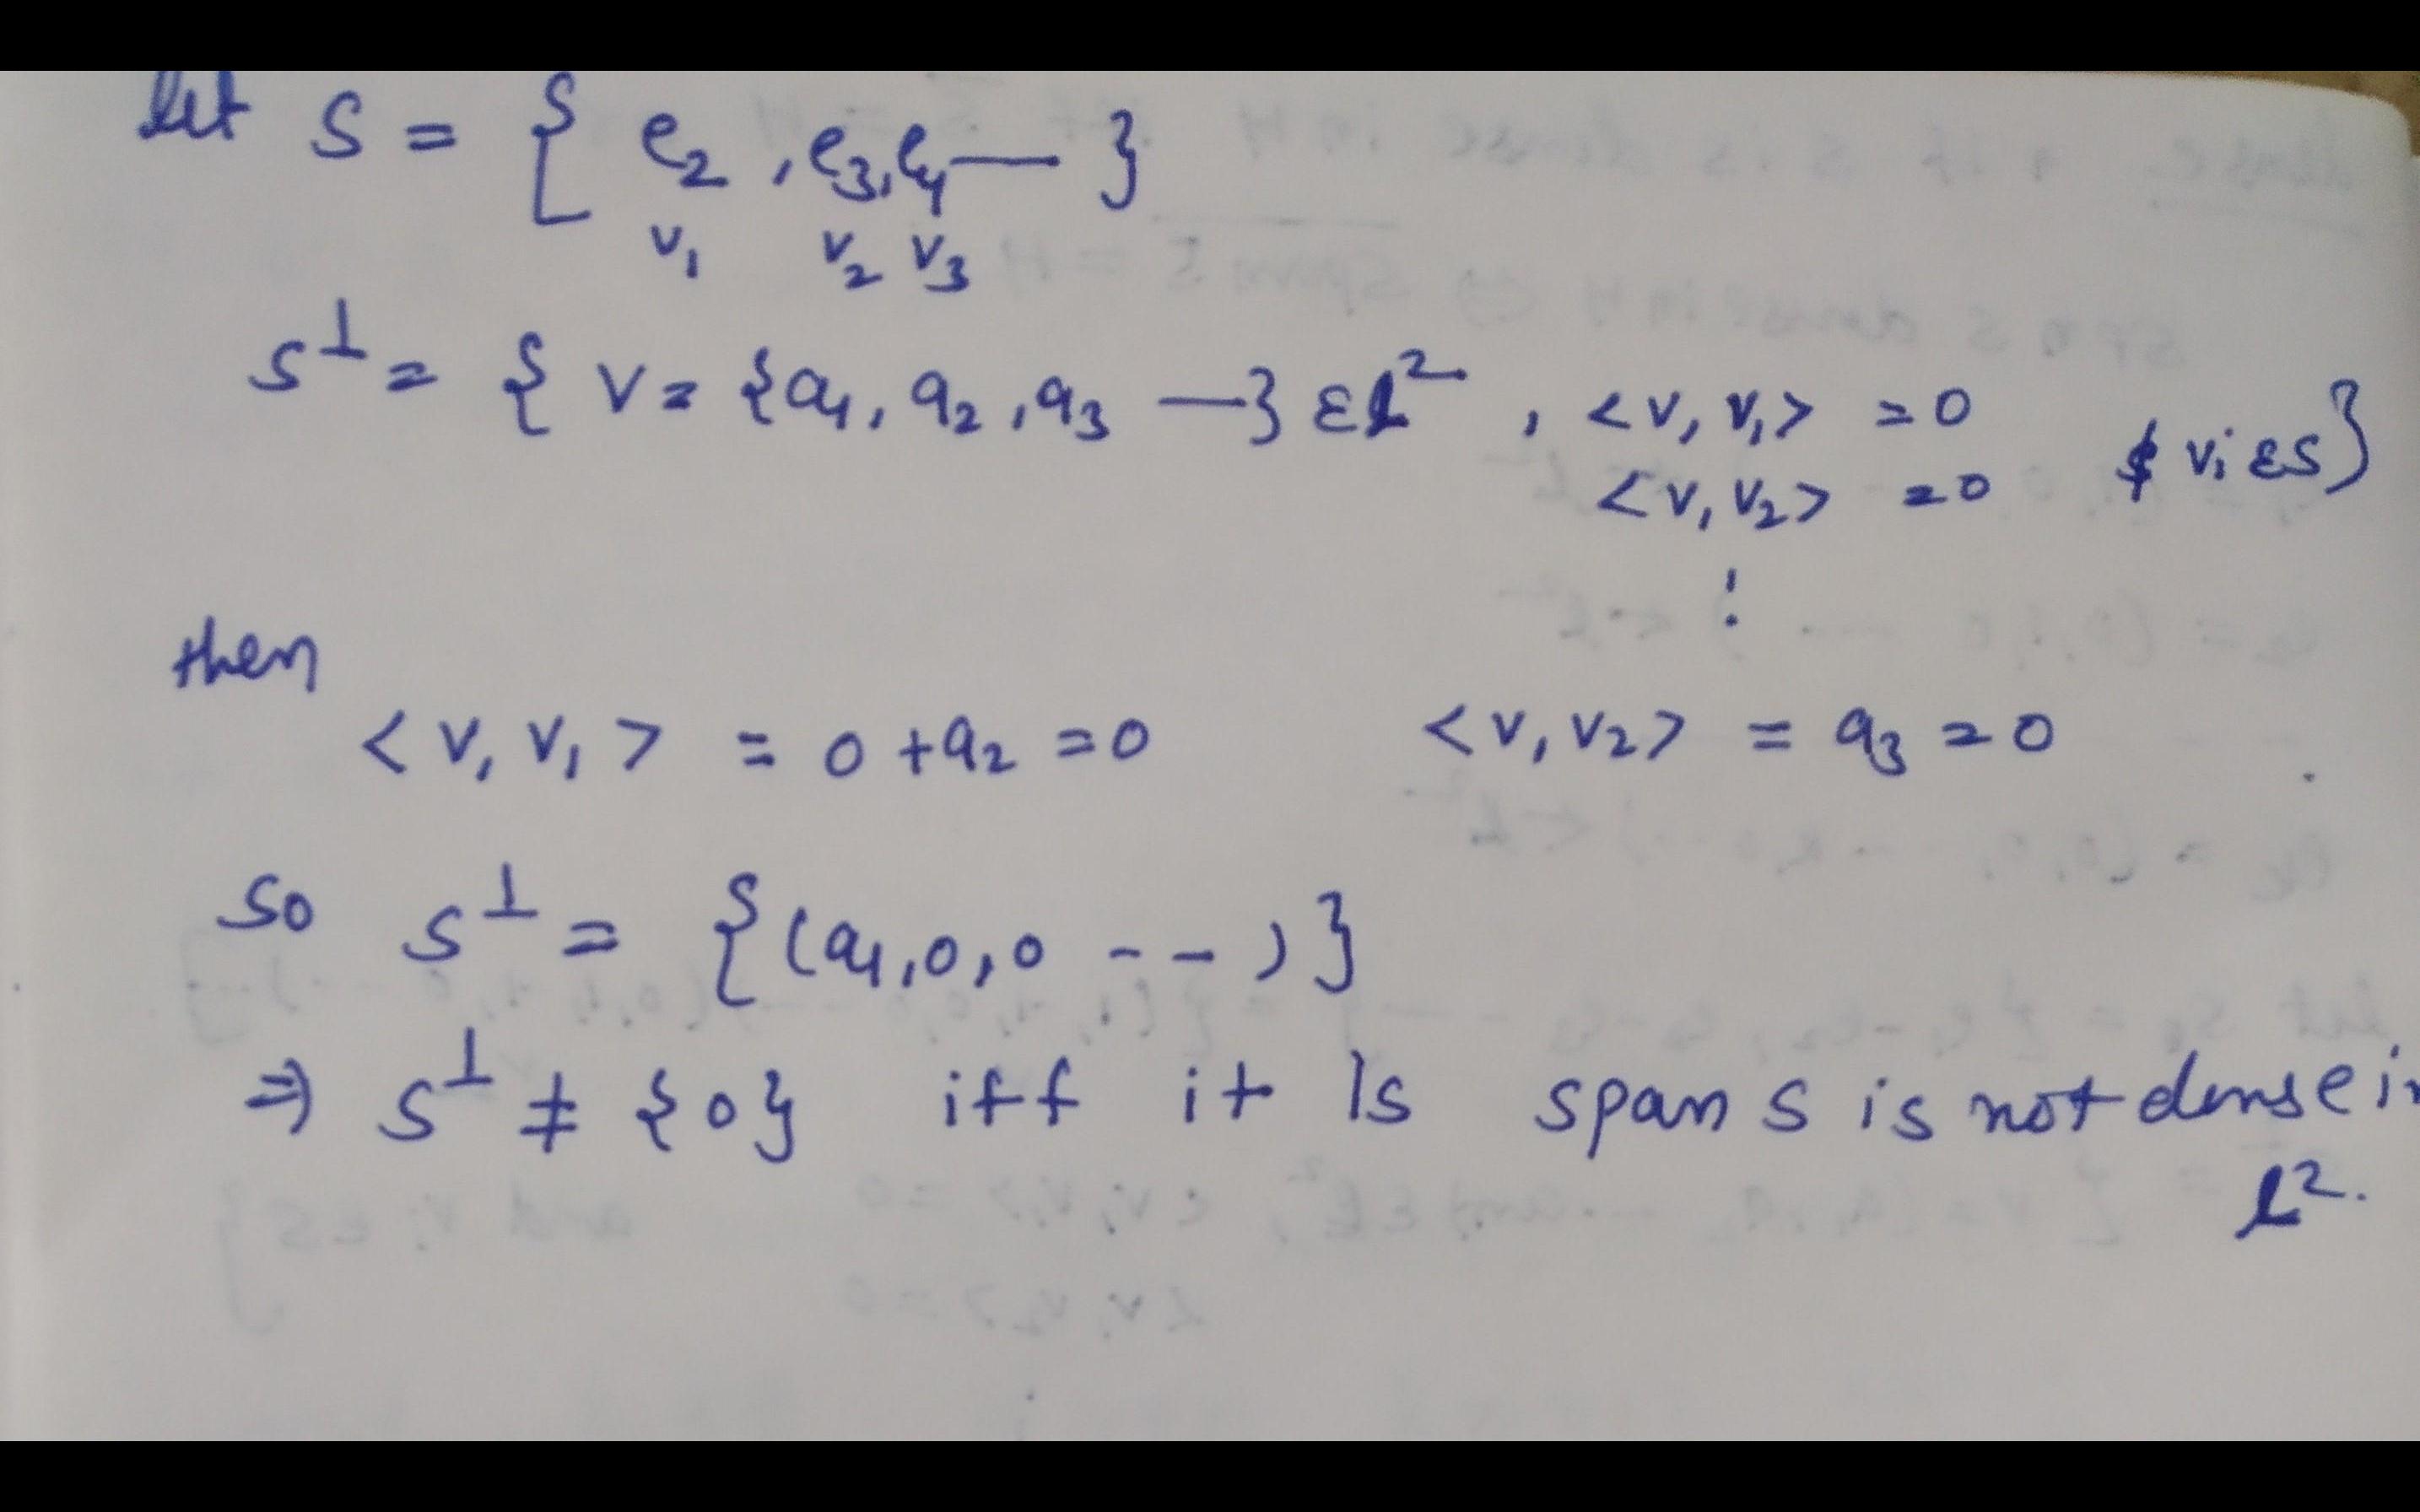 let S = { e2 , e3, e4 — }
v1 v2 v3
S⊥ = { v = {a1, a2, a3 —} ε l² , <v, v1> = 0
<v, v2> = 0 & vi ε S}
⋮
then
<v, v1> = 0 + a2 = 0 <v, v2> = a3 = 0
So S⊥ = {(a1, 0, 0 - - )}
⇒ S⊥ ≠ {0} iff it is span S is not dense in
l².